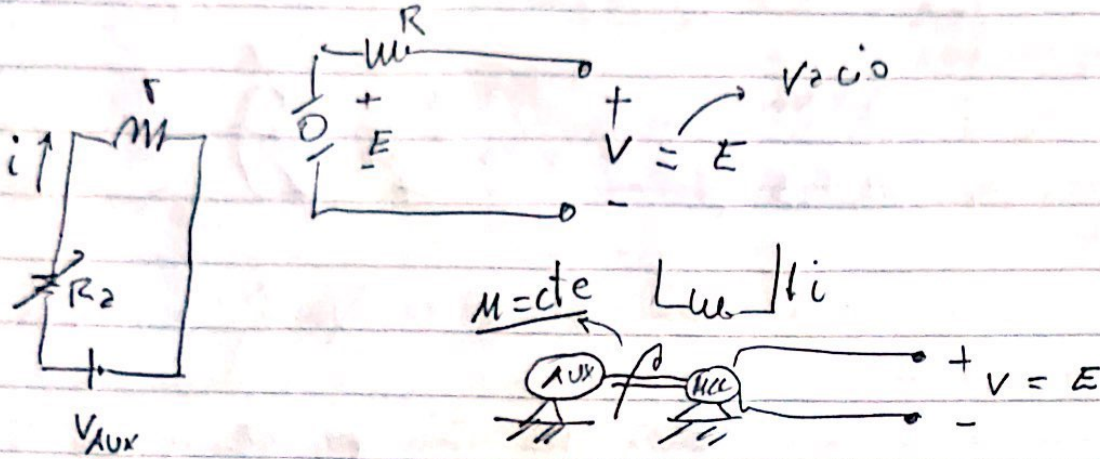 R
r
+
E
-
i
+
V = E
-
vacio
R2
VAUX
n = cte
i
AUX
MCC
+
V = E
-